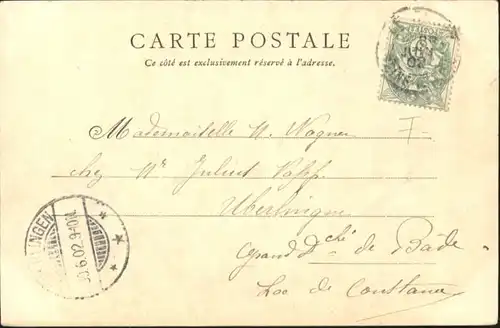 CARTE POSTALE
Ce côté est exclusivement réservé à l'adresse.
Mademoiselle M. Wagner
chez Mr Julius Kapp
Uberlingue
Grand Dché de Bade
Lac de Constance
LINGEN
0.6.02.9-10N.